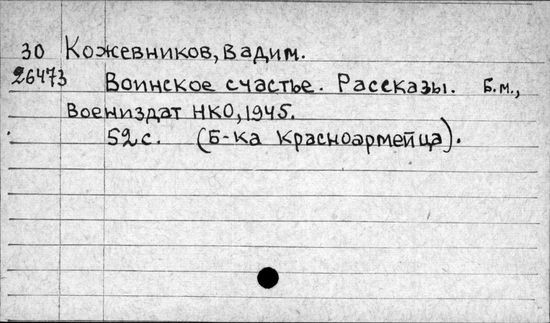 30 Кожевников, Вадим.
26473 Воинское счастье. Рассказы. Б.м.,
Воениздат НКО, 1945.
52 с. (Б-ка Красноармейца).